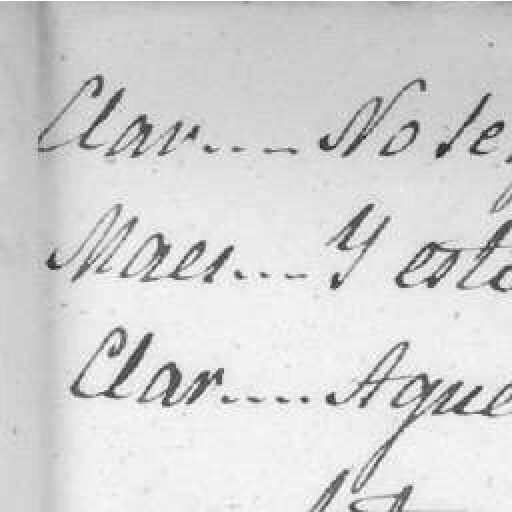 Clar.... No se
Maes.... Y est
Clar..... Aque